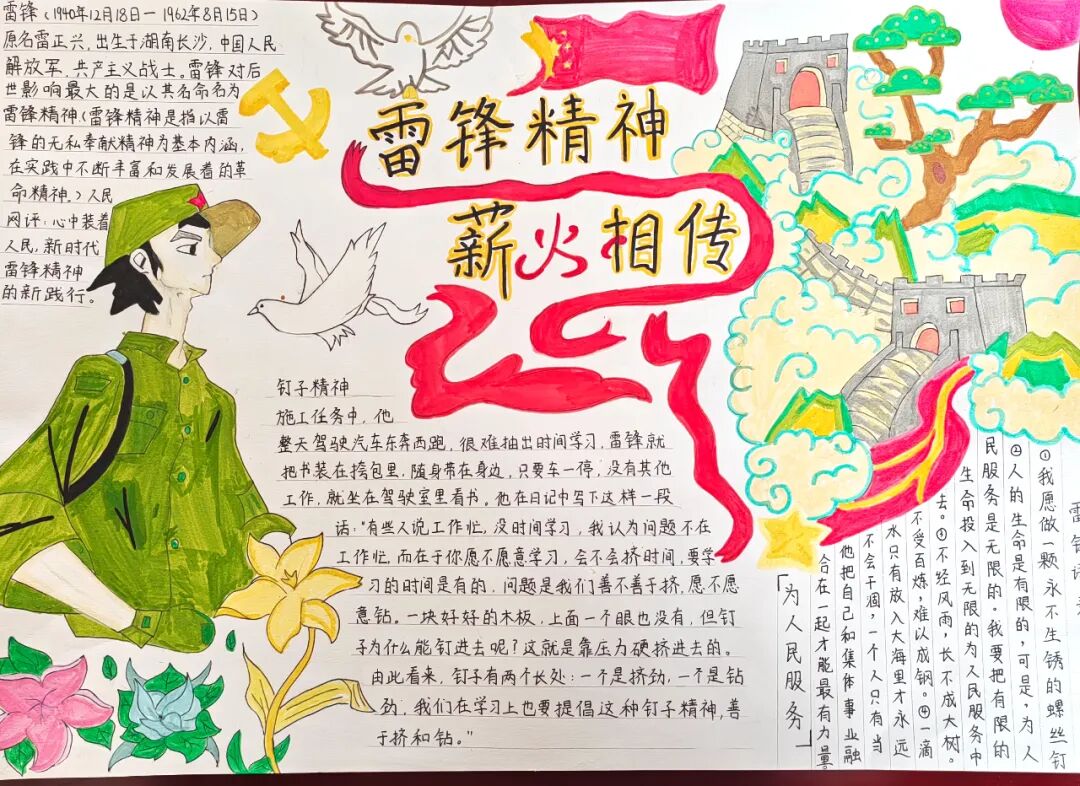 雷锋(1940年12月18日一1962年8月15日)
原名雷正兴,出生于湖南长沙,中国人民
解放军,共产主义战士。雷锋对后
世影响最大的是以其名命名为
雷锋精神(雷锋精神是指以雷
锋的无私奉献精神为基本内涵,
在实践中不断丰富和发展着的革
命精神。)人民
网评:心中装着
人民,新时代
雷锋精神
的新践行。
雷锋精神
薪火相传
钉子精神
施工任务中,他
整天驾驶汽车东奔西跑,很难抽出时间学习,雷锋就
把书装在挎包里,随身带在身边,只要车一停,没有其他
工作,就坐在驾驶室里看书。他在日记中写下这样一段
话:"有些人说工作忙,没时间学习,我认为问题不在
工作忙,而在于你愿不愿意学习,会不会挤时间,要学
习的时间是有的,问题是我们善不善于挤,愿不愿
意钻。一块好好的木板,上面一个眼也没有,但钉
子为什么能钉进去呢?这就是靠压力硬挤进去的。
由此看来,钉子有两个长处:一个是挤劲,一个是钻
劲,我们在学习上也要提倡这种钉子精神,善
于挤和钻。"
雷锋
①我愿做一颗永不生锈的螺丝钉
②人的生命是有限的,可是,为人
民服务是无限的。我要把有限的
生命投入到无限的为人民服务中
去。④不经风雨,长不成大树。
不受百炼,难以成钢。④一滴
水只有放入大海里才永远
不会干涸,一个人只有当
他把自己和集体事业融
合在一起才能最有力量。
「为人民服务」